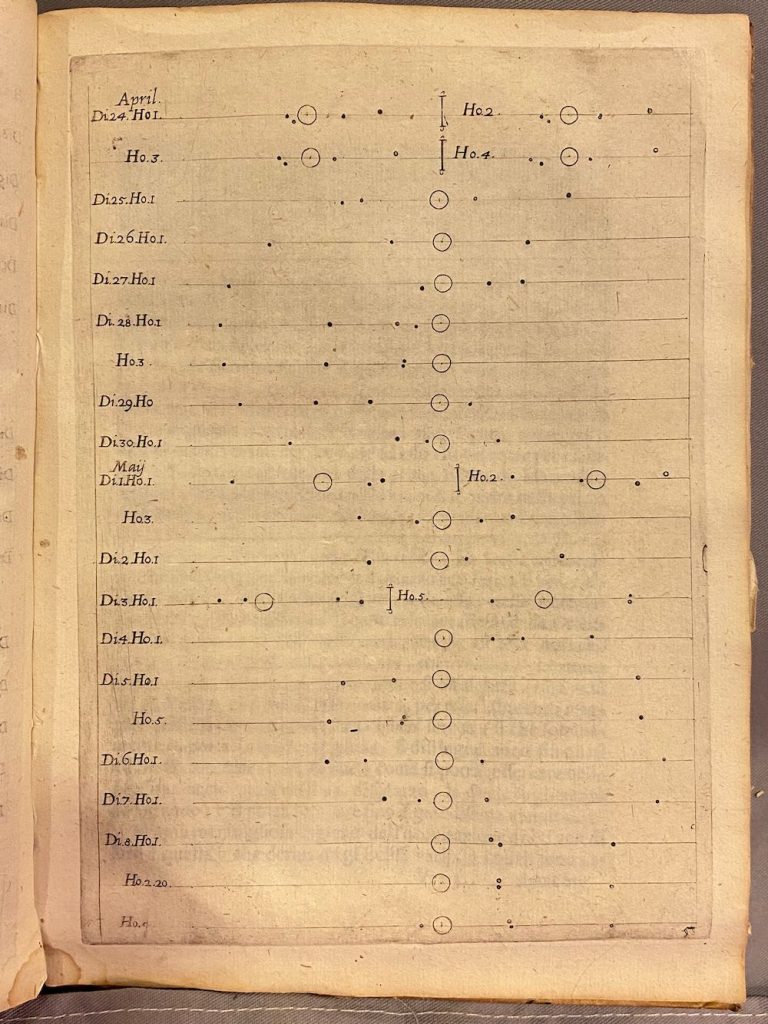 April.
Di.24.Ho.1. Ho.2.
Ho.3. Ho.4.
Di.25.Ho.1
Di.26.Ho.1.
Di.27.Ho.1
Di.28.Ho.1
Ho.3.
Di.29.Ho
Di.30.Ho.1
Maij
Di.1.Ho.1. Ho.2.
Ho.3.
Di.2.Ho.1
Di.3.Ho.1. Ho.5.
Di.4.Ho.1.
Di.5.Ho.1
Ho.5.
Di.6.Ho.1.
Di.7.Ho.1.
Di.8.Ho.1.
Ho.2.20.
Ho.
5